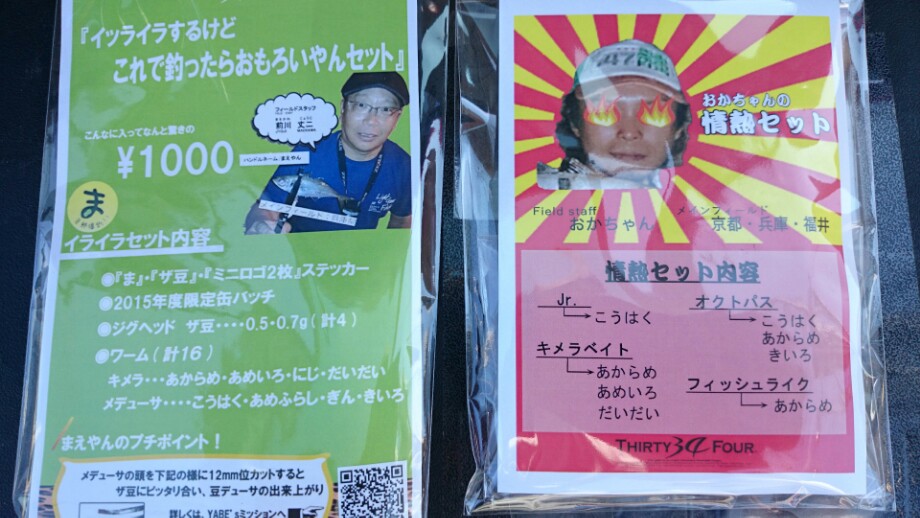 『イッライラするけど
これで釣ったらおもろいやんセット』
こんなに入ってなんと驚きの
¥1000
フィールドスタッフ
前川 丈二
ハンドルネーム：まえやん
メインフィールド：
ま
イライラセット内容
●『ま』・『ザ豆』・『ミニロゴ2枚』ステッカー
●2015年度限定缶バッチ
●ジグヘッド ザ豆・・・・0.5・0.7g（計4）
●ワーム（計16）
キメラ・・・あからめ・あめいろ・にじ・だいだい
メデューサ・・・・こうはく・あめふらし・ぎん・きいろ
まえやんのプチポイント！
メデューサの頭を下記の様に12mm位カットすると
ザ豆にピッタリ合い、豆デューサの出来上がり
詳しくは、YABE'sミッションへ
おかちゃんの
情熱セット
Field staff
おかちゃん
メインフィールド
京都・兵庫・福井
情熱セット内容
Jr.
こうはく
キメラベイト
あからめ
あめいろ
だいだい
オクトパス
こうはく
あからめ
きいろ
フィッシュライク
あからめ
THIRTY 34 FOUR